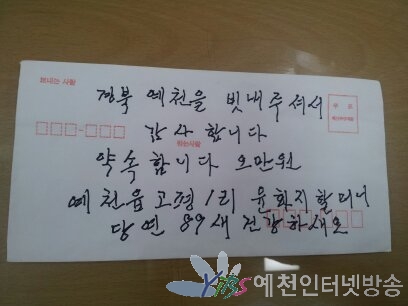 보내는 사람
경북 예천을 빗내주셔서
우 표
감사합니다
받는사람
약속합니다 오만원
예천읍 고평1리 윤화지할머니
당연 89새 건강하새요
YIBS 예천인터넷방송